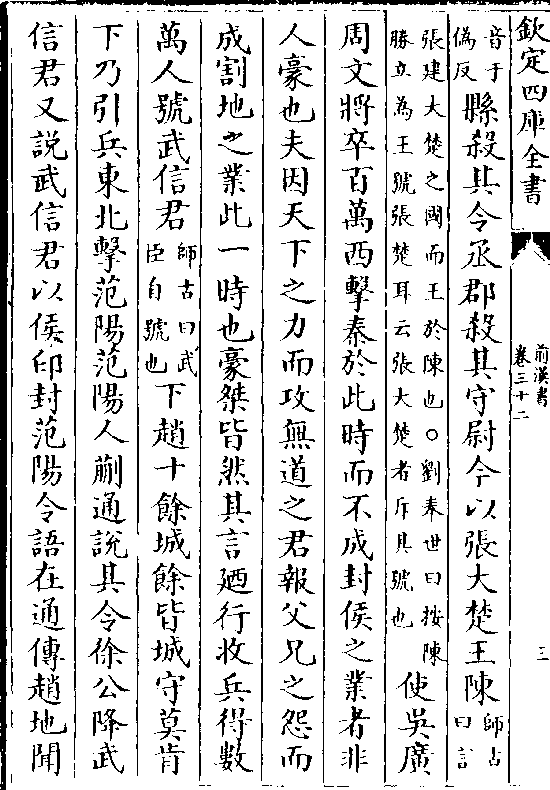 欽定四庫全書
前漢書
卷三十二
三
音于
偽反
縣殺其令丞郡殺其守尉今以張大楚王陳
師古
曰言
張建大楚之國而王於陳也○劉奉世曰按陳
勝立為王號張楚耳云張大楚者斥其號也
使吳廣
周文將卒百萬西擊秦於此時而不成封侯之業者非
人豪也夫因天下之力而攻無道之君報父兄之怨而
成割地之業此一時也豪桀皆然其言廼行收兵得數
萬人號武信君
師古曰武
臣自號也
下趙十餘城餘皆城守莫肯
下乃引兵東北擊范陽范陽人蒯通說其令徐公降武
信君又說武信君以侯印封范陽令語在通傳趙地聞